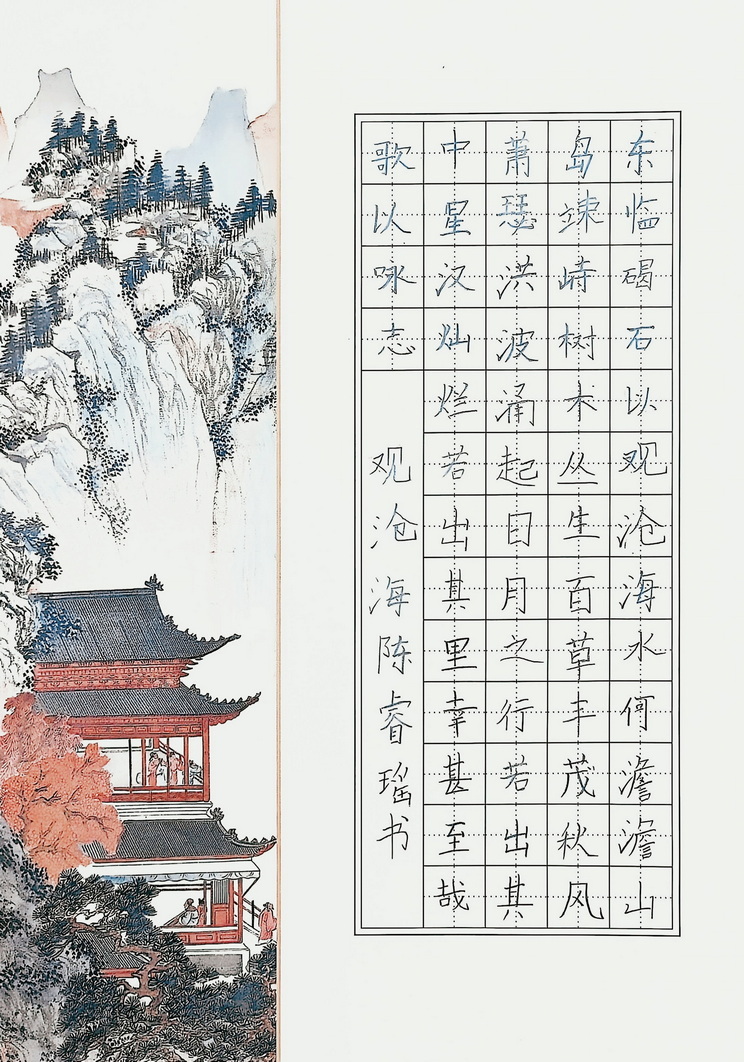 东临碣石以观沧海水何澹澹山
岛竦峙树木丛生百草丰茂秋风
萧瑟洪波涌起日月之行若出其
中星汉灿烂若出其里幸甚至哉
歌以咏志
观沧海陈睿瑶书